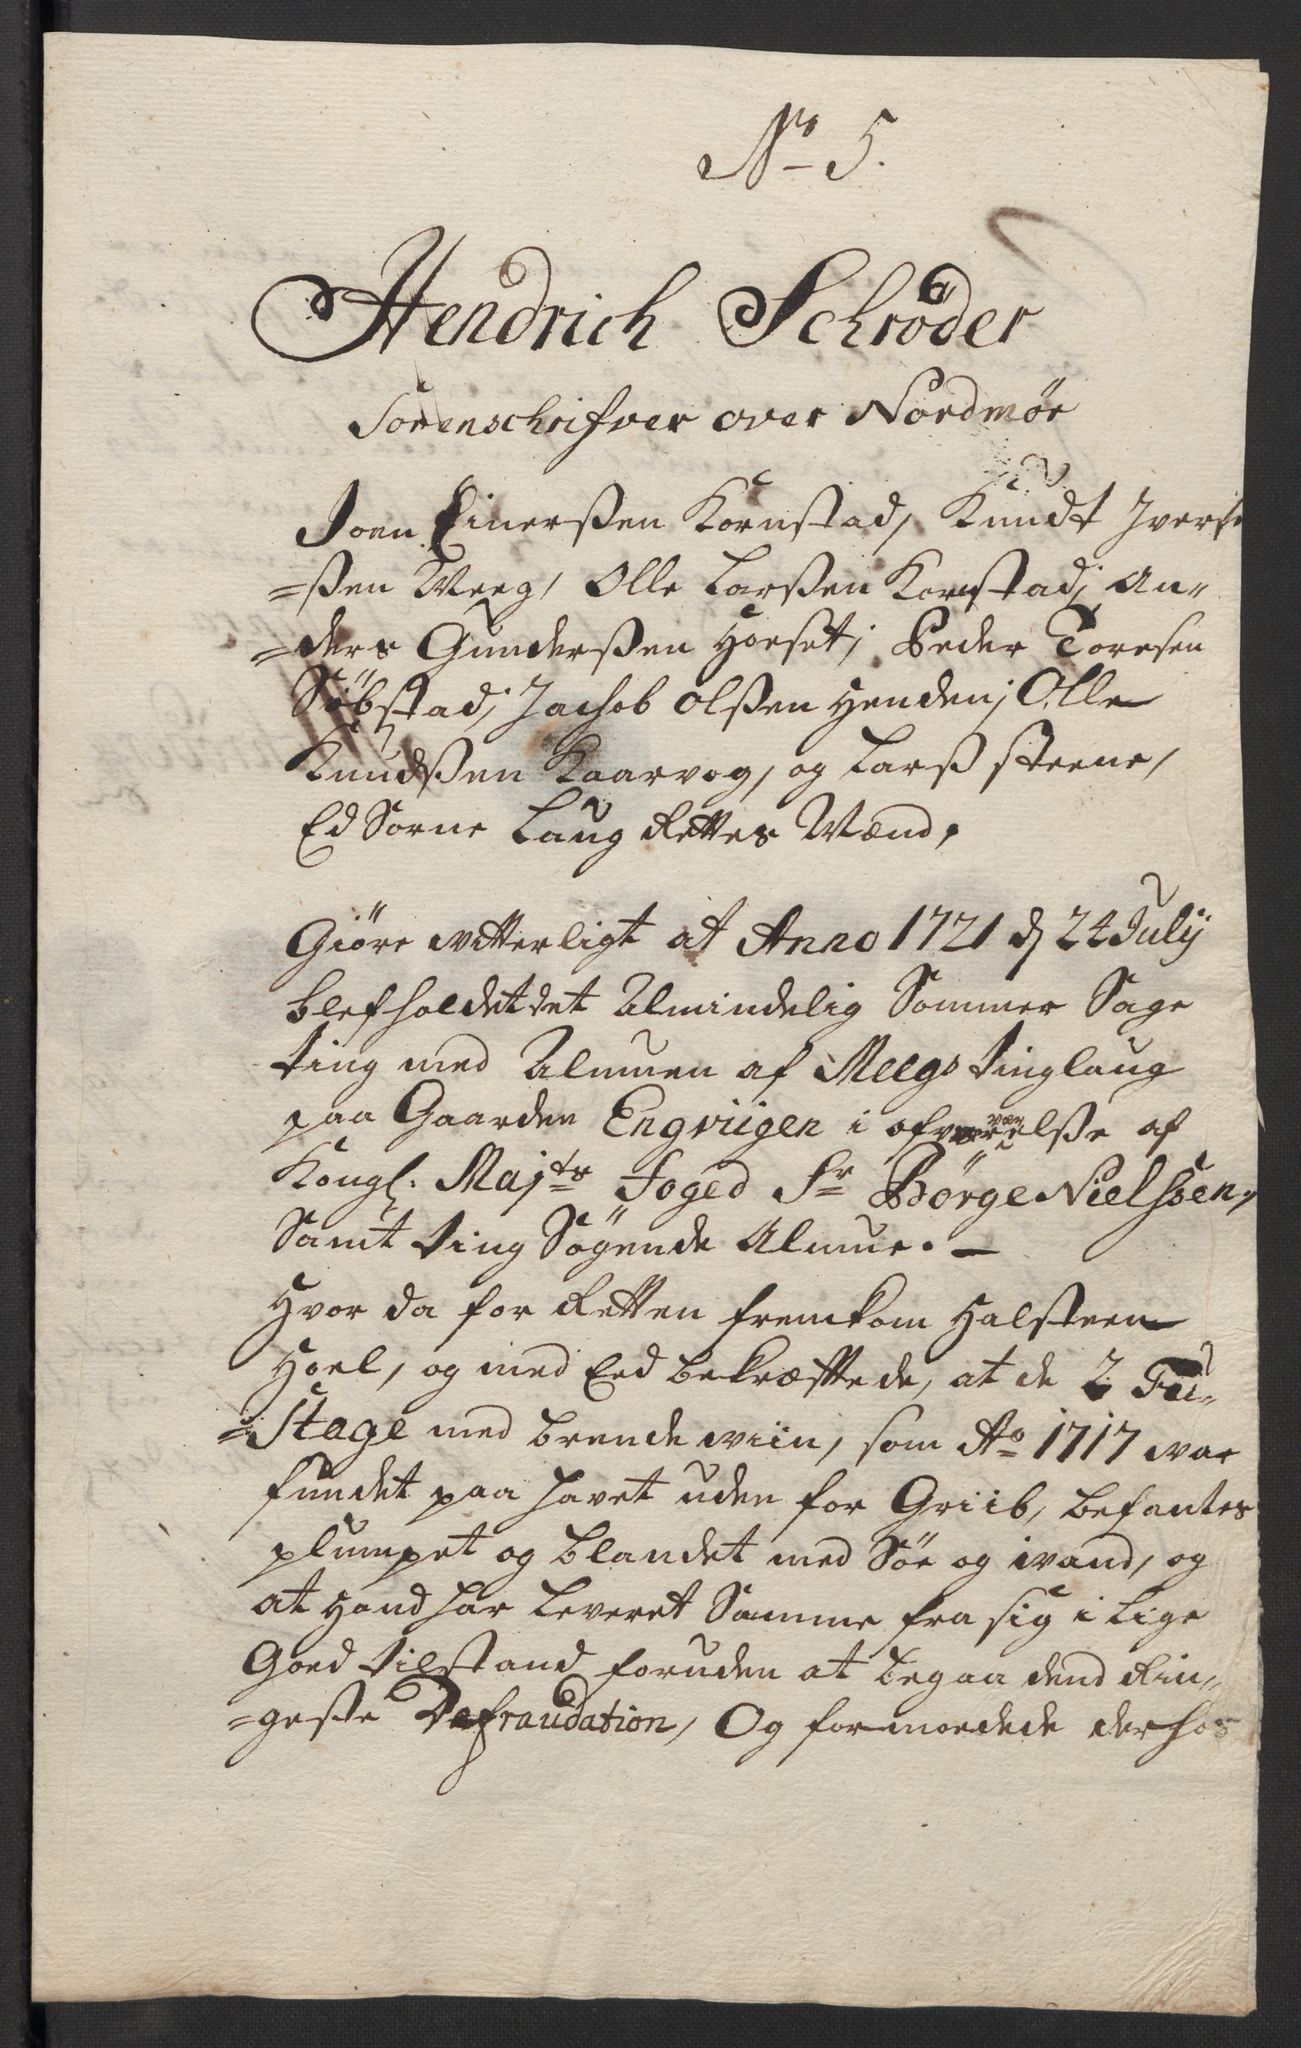 No 5.
Hendrich Schröder
Sorenschrifver over Nordmør
Joen Einerssen Kornstad, Knudt Iver=
=ssen Meeg, Olle Larssen Kornstad, An=
=ders Gunderssen Horset, Peder Toresen
Söbstad, Jachob Olssen Henden, Olle
Knudssen Kaarvog, og Larss Steene,
Ed Sorne Laug Rettes Mænd,
Giöre witterligt at Anno 1721 d 24 Julij
blef holdet det Almindelig Sommer Sage
ting med Almuen af Meegs tinglaug
paa Gaarden Engviigen i ofverværelsse af
Kongl. Majts foged Sr Börge Nielssen,
Samt ting Sögende Almue. —
Hvor da for Retten fremkom Halsteen
Hoel, og med Eed bekræftede, at de 2 Fu=
=stage med brendewiin, som Ao 1717 war
fundet paa havet uden for Griib, befantes
plumpet og blandet med Söe og wand, og
at Hand har leveret Samme fra sig i lige
Goed tilstand foruden at begaa dend Rin=
=geste Defraudation, Og formoedede derhos